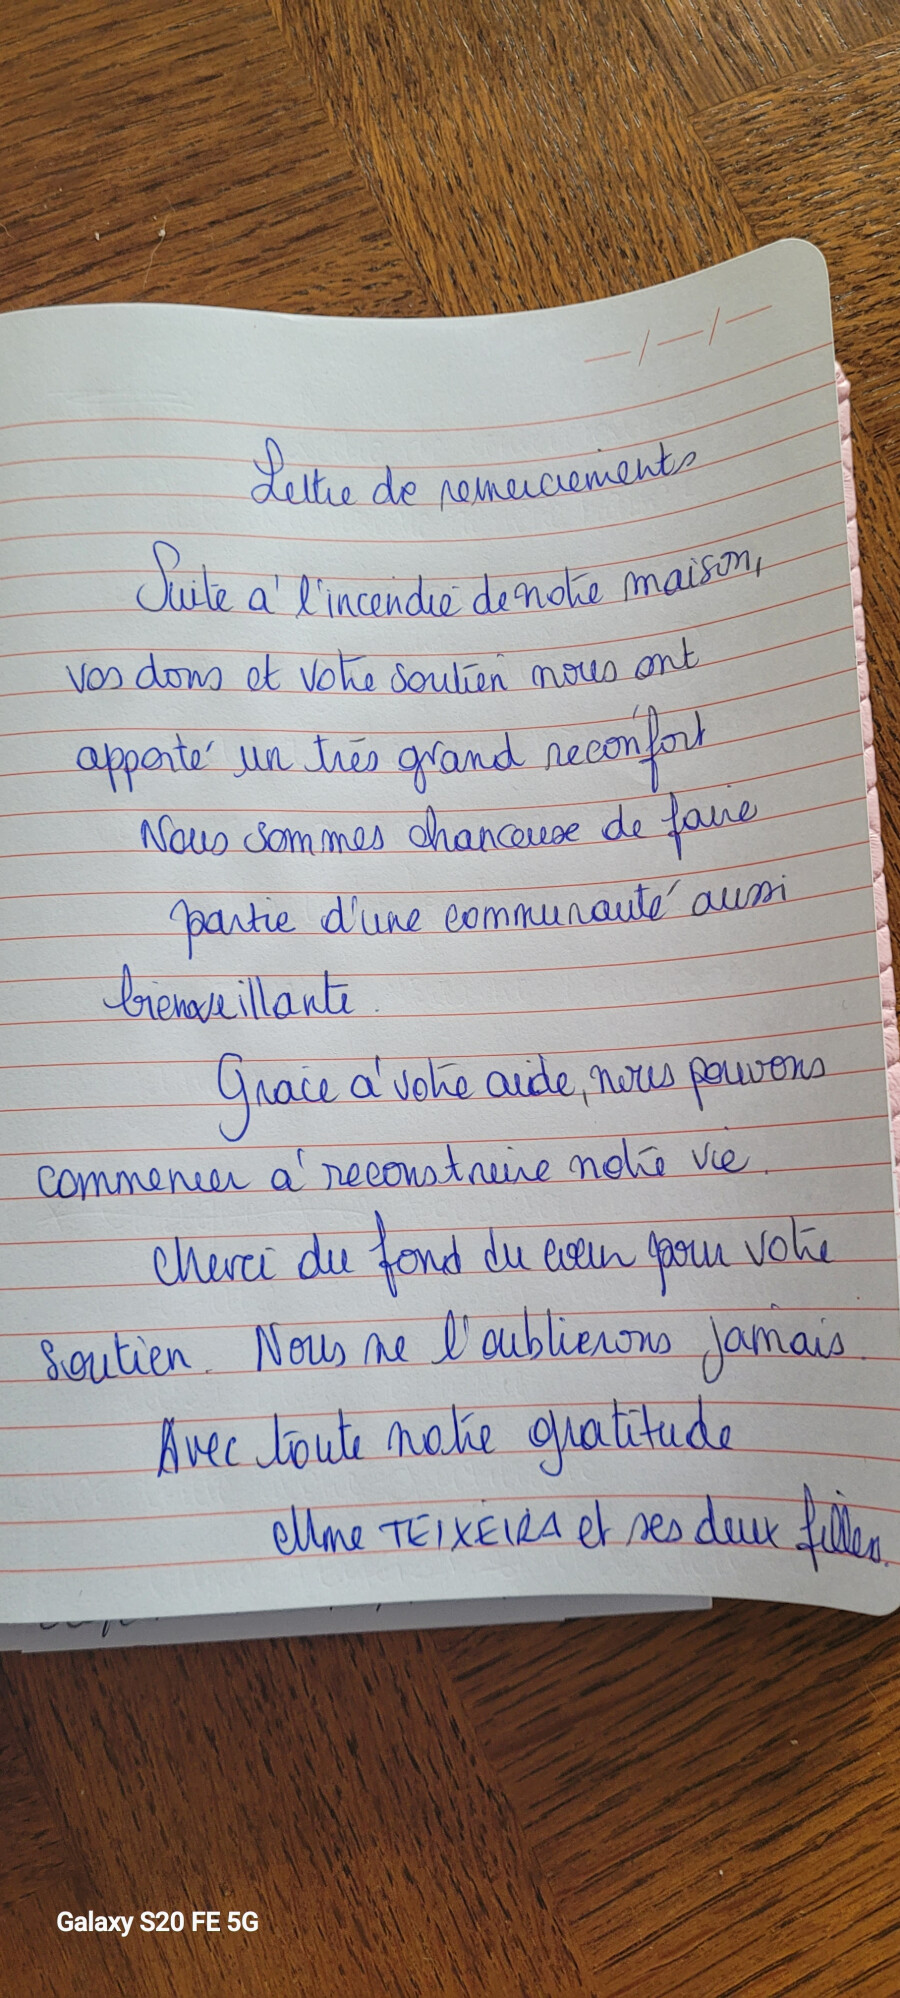 Lettre de remerciements
Suite à l'incendie de notre maison,
vos dons et votre soutien nous ont
apporté un très grand réconfort
Nous sommes chanceuse de faire
partie d'une communauté aussi
bienveillante.
Grace à votre aide, nous pouvons
commencer à reconstruire notre vie.
Merci du fond du coeur pour votre
soutien. Nous ne l'oublierons jamais.
Avec toute notre gratitude
Mme TEIXEIRA et ses deux filles.
Galaxy S20 FE 5G